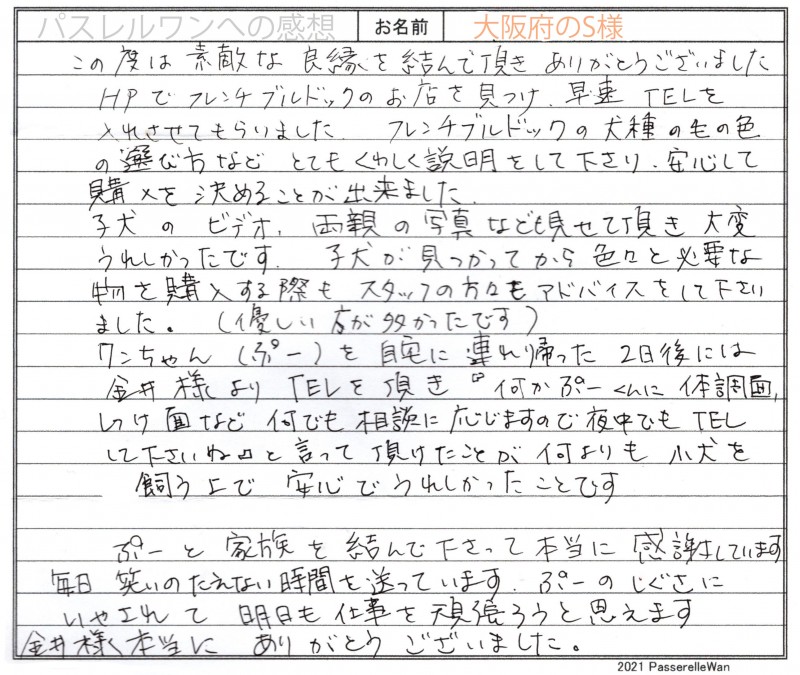 パスレルワンへの感想 お名前 大阪府のS様
この度は素敵な良縁を結んで頂きありがとうございました
HPでフレンチブルドックのお店を見つけ、早速TELを
入れさせてもらいました。フレンチブルドックの犬種の毛の色
の選び方など とてもくわしく説明をして下さり、安心して
購入を決めることが出来ました。
子犬のビデオ、両親の写真なども見せて頂き大変
うれしかったです。子犬が見つかってから色々と必要な
物を購入する際も スタッフの方々もアドバイスをして下さい
ました。(優しい方が多かったです)
ワンちゃん(ぷー)を自宅に連れ帰った2日後には
金井様よりTELを頂き『何かぷーくんに体調面,
しつけ面など何でも相談に応じますので夜中でもTEL
して下さいね』と言って頂けたことが何よりも小犬を
飼う上で安心でうれしかったことです
ぷーと家族を結んで下さって本当に感謝しています
毎日笑いのたえない時間を送っています。ぷーのしぐさに
いやされて明日も仕事を頑張ろうと思えます
金井様、本当にありがとうございました。
2021 PasserelleWan